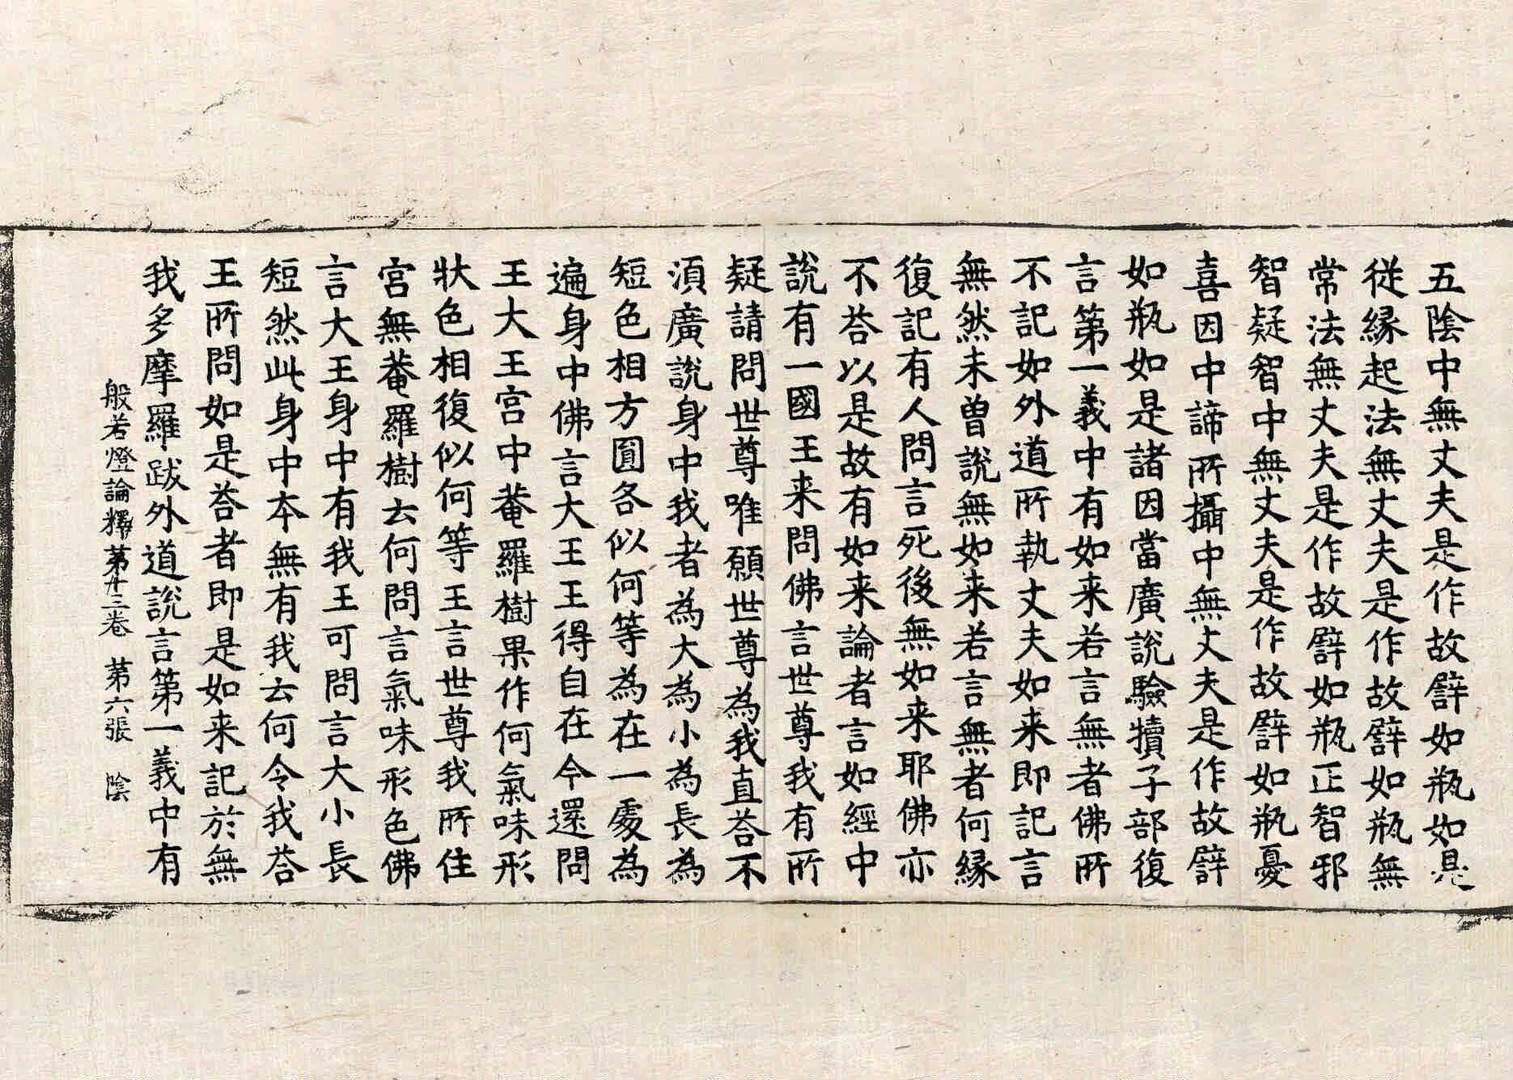 五陰中無丈夫是作故譬如瓶如是
從縁起法無丈夫是作故譬如瓶無
常法無丈夫是作故譬如瓶正智邪
智疑智中無丈夫是作故譬如瓶憂
喜因中諦所攝中無丈夫是作故譬
如瓶如是諸因當廣說驗犢子部復
言第一義中有如来若言無者佛所
不記如外道所執丈夫如来即記言
無然未曽說無如来若言無者何縁
復記有人問言死後無如来耶佛亦
不荅以是故有如来論者言如經中
說有一國王来問佛言世尊我有所
疑請問世尊唯願世尊為我直荅不
湏廣說身中我者為大為小為長為
短色相方圓各似何等為在一處為
遍身中佛言大王王得自在今還問
王大王宮中菴羅樹果作何氣味形
狀色相復似何等王言世尊我所住
宮無菴羅樹去何問言氣味形色佛
言大王身中有我王可問言大小長
短然此身中本無有我去何令我荅
王所問如是荅者即是如来記於無
我多摩羅跋外道說言第一義中有
般若燈論釋第十三卷　第六張　陰